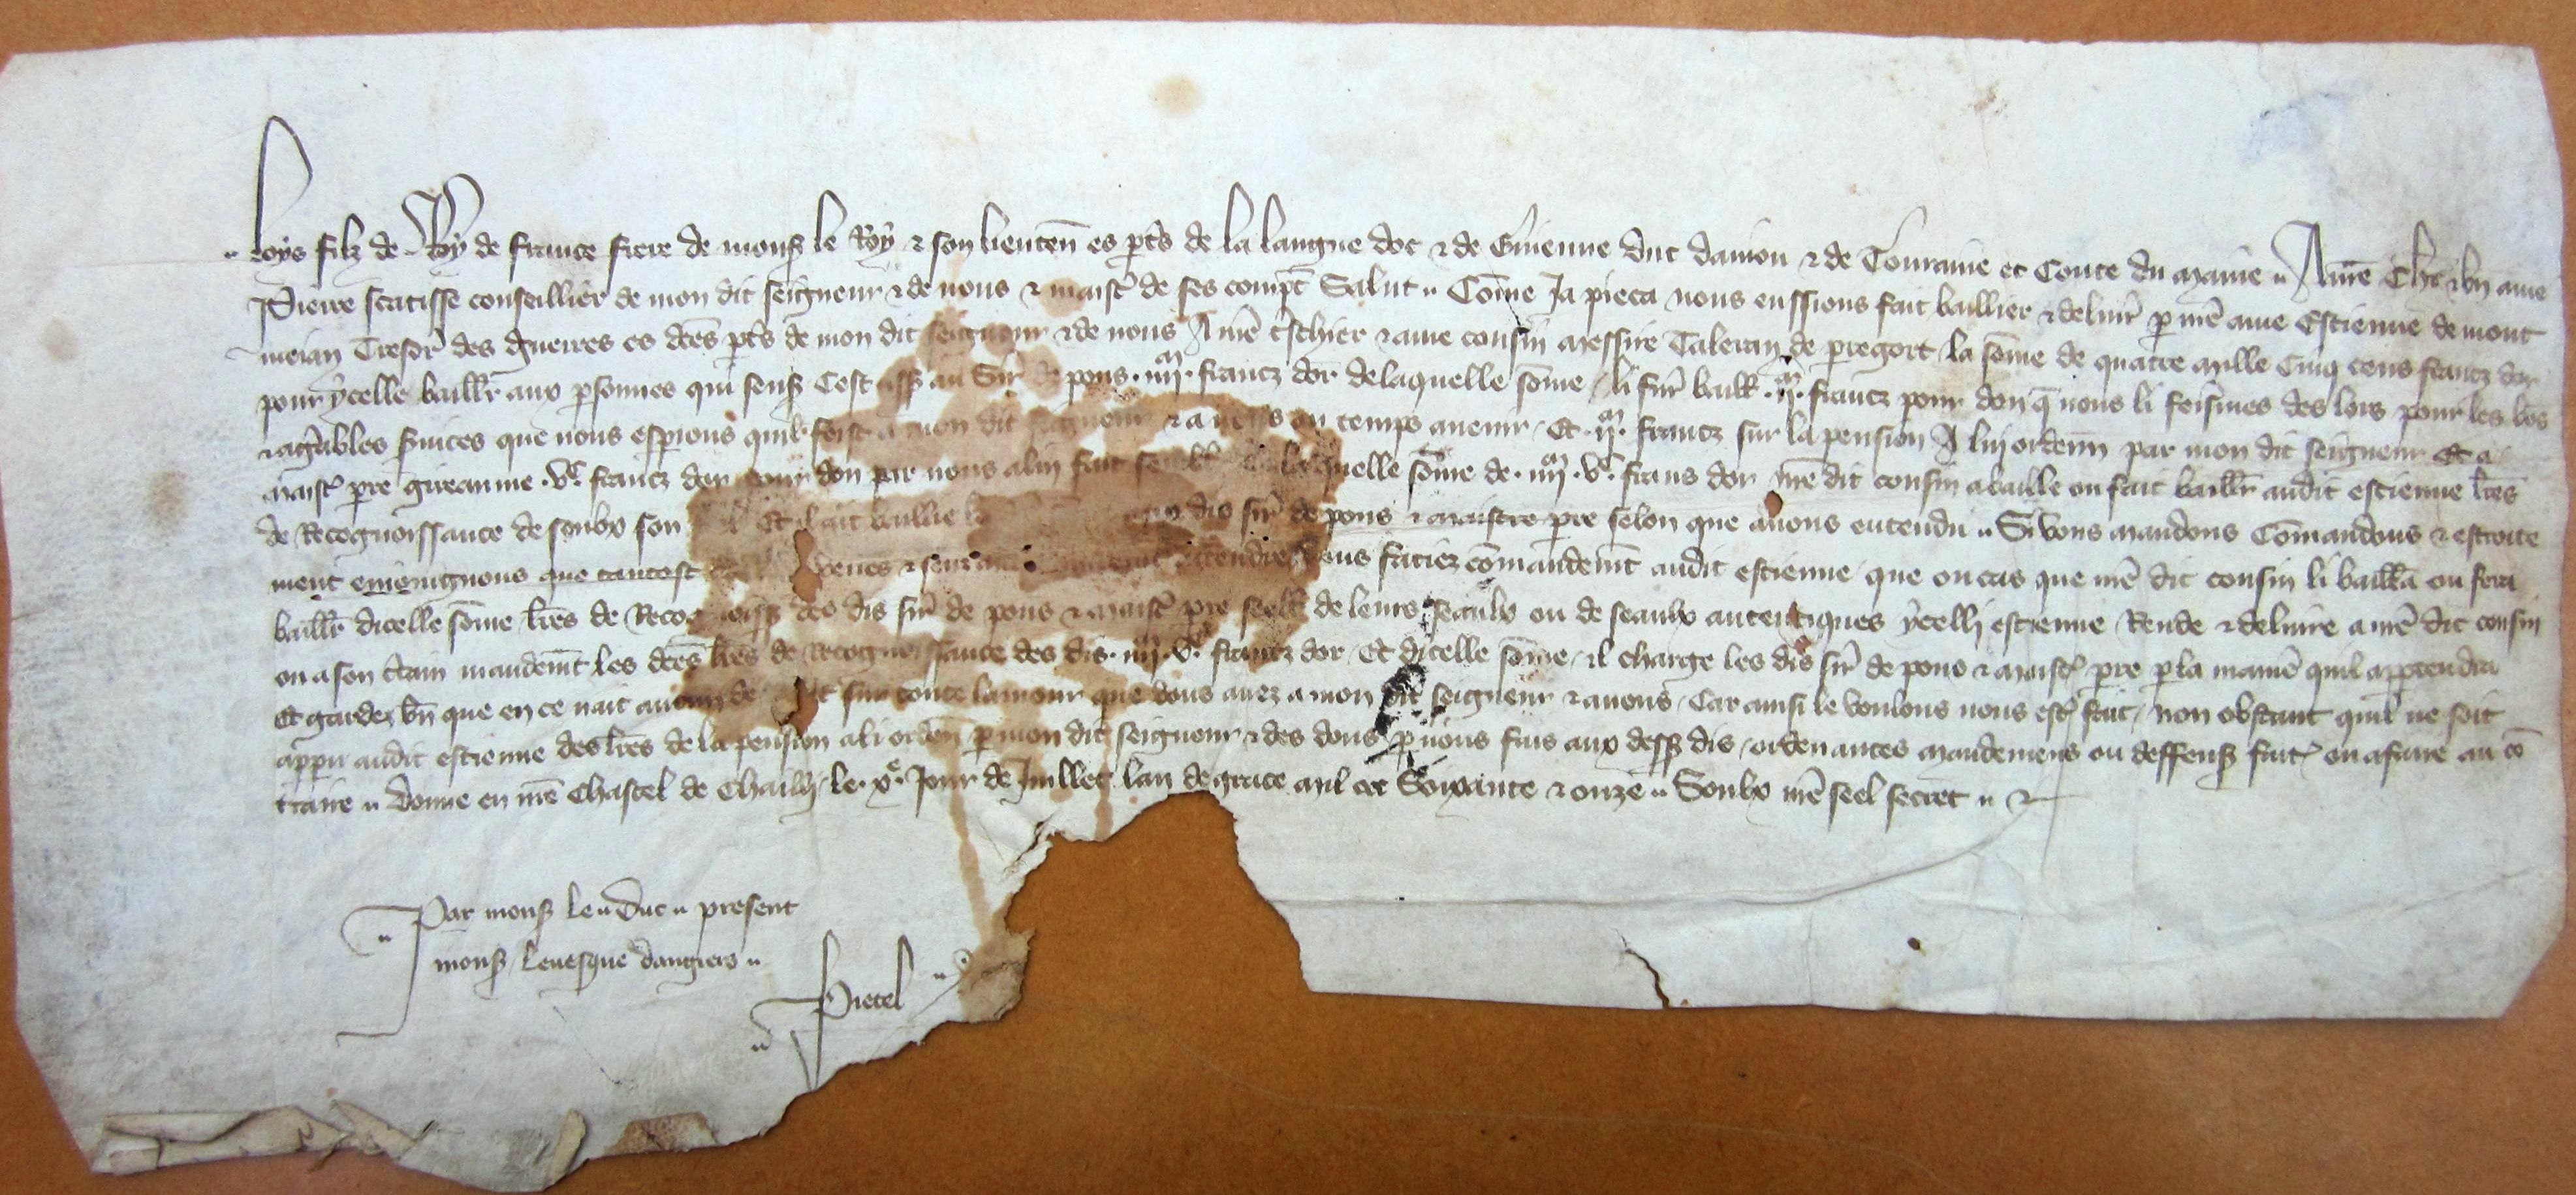 Loys filz de Roy de france frere de mons le Roy & son lieuten es pts de la langue doc & de Guienne duc daniou & de Touraine et Conte du Maine A nre chr & bn ame
Pierre scatisse conseillier de mon dit seigneur & de nous & maist de ses compt Salut Come Ja pieca nous eussions fait baillier & deliur p nre ame Estienne de mont
meian Tresor des guerres es dces pts de mon dit seigneur & de nous A nre tschier & ame cousin messire Taleran de peregort la some de quatre mille Cinq cens francz dor
pour ycelle baillr aux psonnes qui sens Cest ass au Sir de pons .iiii.m francz dor de laquelle some li fur baill .ii.m francz pour don q nous li feismes des lors pour les bos
& agables suices que nous espions quil feist a mon dit seigneur & a nous ou temps auenir Et .ii.m francz sur la pension A lui ordenn par mon dit seigneur Et a
maist pre gireaume .vc. francz dor pour don par nous a lui fait laquelle some de .iiii.m .vc. frans dor nre dit cousin a baille ou fait baillr audit estienne lres
de Recognoissance de soubz son Et il ait baillie dis sir de pons & maistre pre selon que auons entendu Si vous mandons Comandons & estroite
ment enioingnons que tantost venes & vous faciez comandemt audit estienne que ou cas que nre dit cousin li baillra ou fera
baillr dicelle some lres de Recognoiss des dis sir de pons & maist pre seell de leurs seaulx ou de seaulx autentiques ycelli estienne Rende & deliure a nre dit cousin
ou a son ctain mandemt les dces lres de Recognoissance des dis .iiii.m .vc. francz dor Et dicelle some il charge les dis sir de pons & maist pre p la manie quil appartendra
Et gardez bn que en ce nait aucun de sur toute lamour que vous auez a mon dit seigneur & a nous Car ainsi le voulons nous est fait non obstant quil ne soit
apparu audit estienne des lres de la pension a li orden p mon dit seigneur & des dons p nous fais aux dess dis ordenances mandemens ou deffens fait ou a faire au co
traire donne en nre Chastel de Chailli le .xe. Jour de Juillet lan de grace mil ccc Soixante & onze Soubz nre seel secret &
Par mons le duc present
mons leuesque dangiers
Pietel